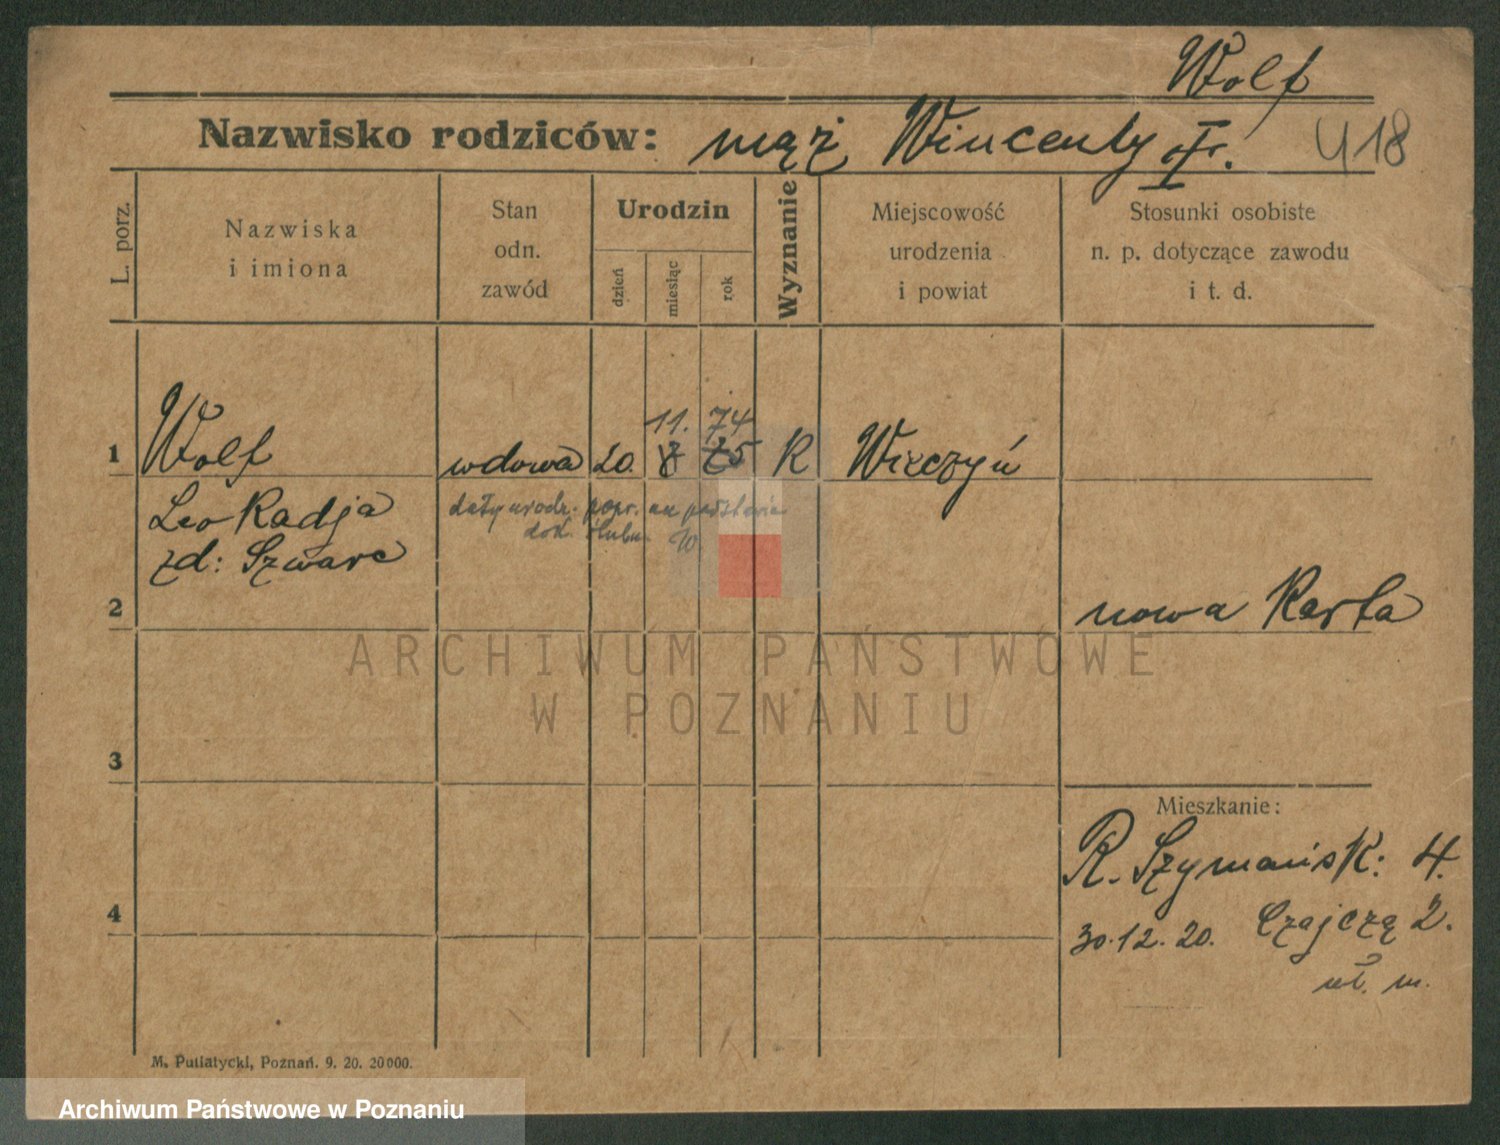 Wolf
Nazwisko rodziców: mąż Wincenty fr. 418
I
L. porz.
Nazwiska
i imiona
Stan
odn.
zawód
Urodzin
dzień
miesiąc
rok
Wyznanie
Miejscowość
urodzenia
i powiat
Stosunki osobiste
n. p. dotyczące zawodu
i t. d.
11. 74
1 Wolf wdowa 20. 75 R Wieczyń
Leokadja
zd: Szwarc
daty urodz. popr. na podstawie
dok. ślubu. W.
2 nowa Karta
ARCHIWUM PAŃSTWOWE
W POZNANIU
3
Mieszkanie:
R. Szymańsk: 4.
4
30.12.20. Czajczą 2.
wł. m.
M. Putiatycki, Poznań. 9. 20. 20000.
Archiwum Państwowe w Poznaniu